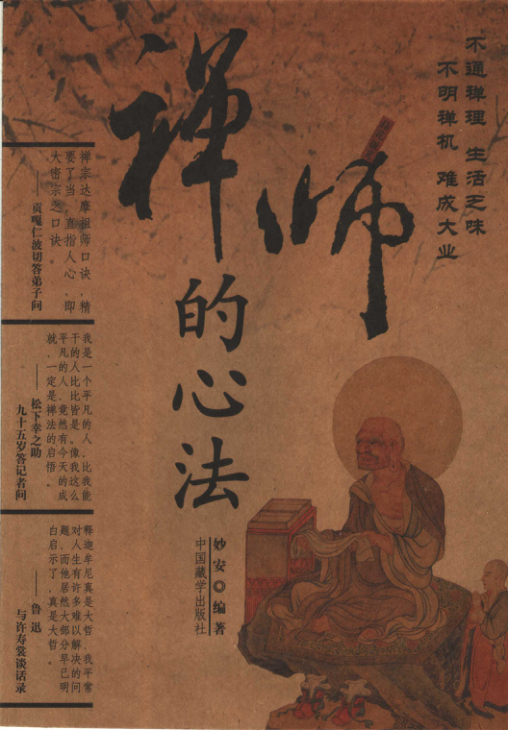 不通禅理 生活乏味
不明禅机 难成大业
禅师
的心法
妙安◎编著
中国藏学出版社
禅宗达摩祖师口诀，精
要了当，直指人心，即
大密宗之口诀。
——贡嘎仁波切答弟子问
我是一个平凡的人，比我能
干的人比比皆是。像我这么
平凡的人，竟然有今天的成
就，一定是禅法的启悟。
——松下幸之助
九十五岁答记者问
释迦牟尼真是大哲，我平常
对人生有许多难以解决的问
题，而他居然大部分早已明
白启示了，真是大哲。
——鲁迅
与许寿裳谈话录